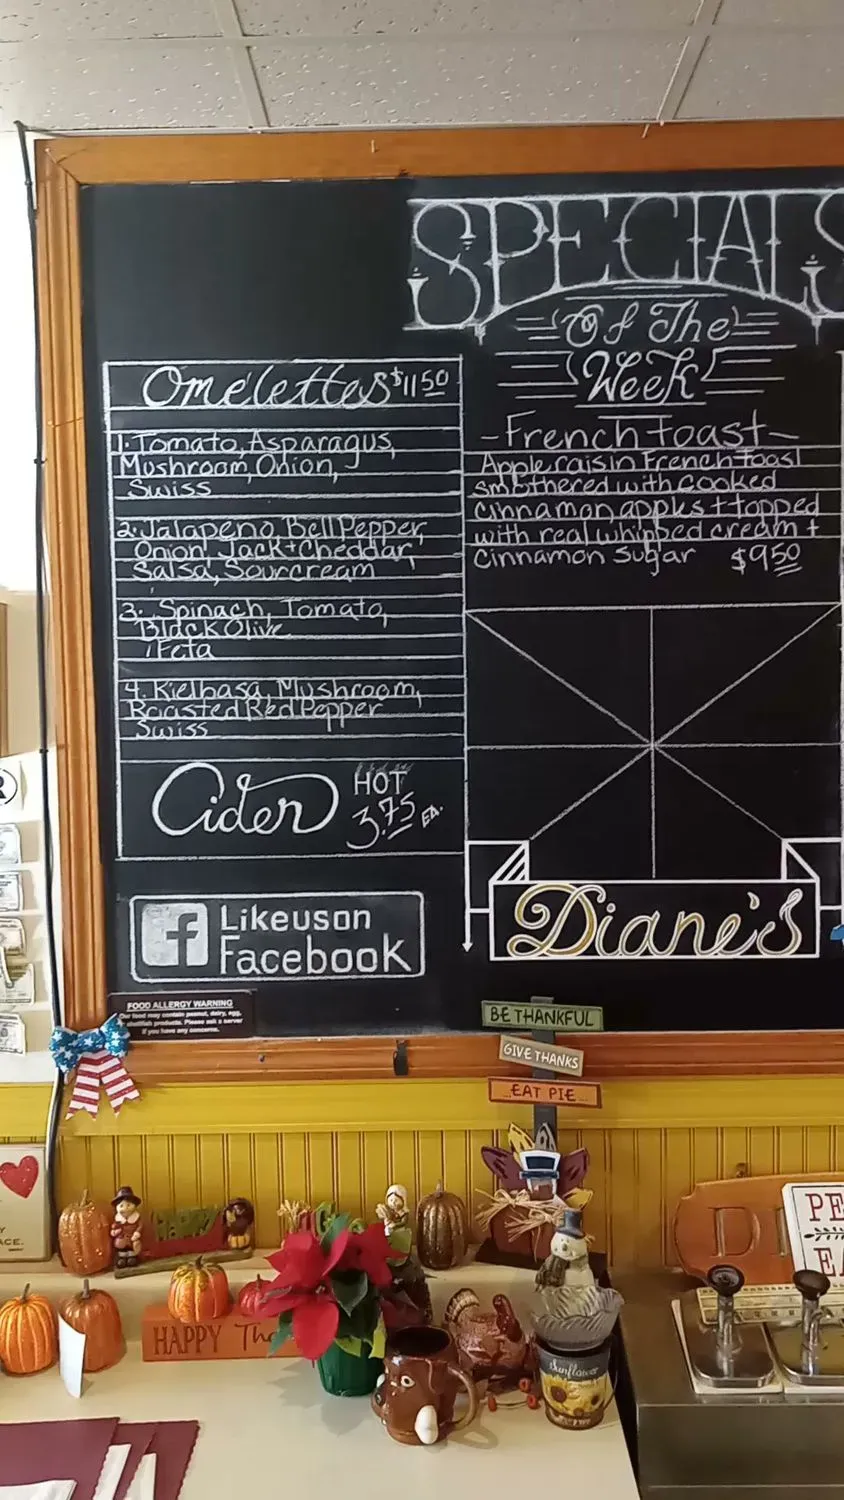 SPECIALS
Of The
Week
Omelettes $11.50
1. Tomato, Asparagus,
Mushroom, Onion,
Swiss
2. Jalapeno, Bell Pepper,
Onion, Jack + Cheddar,
Salsa, Sourcream
3. Spinach, Tomato,
Black Olive
Feta
4. Kielbasa, Mushroom,
Roasted Red Pepper
Swiss
Cider HOT
3.75 EA.
Like us on
Facebook
-French toast-
Apple raisin French toast
smothered with cooked
cinnamon apples + topped
with real whipped cream +
Cinnamon Sugar $9.50
Diane's
FOOD ALLERGY WARNING
Our food may contain peanut, dairy, egg,
shellfish products. Please ask a server
if you have any concerns.
BE THANKFUL
GIVE THANKS
EAT PIE
HAPPY
HAPPY Tha
Sunflower
PE
EA
DI
ACE.